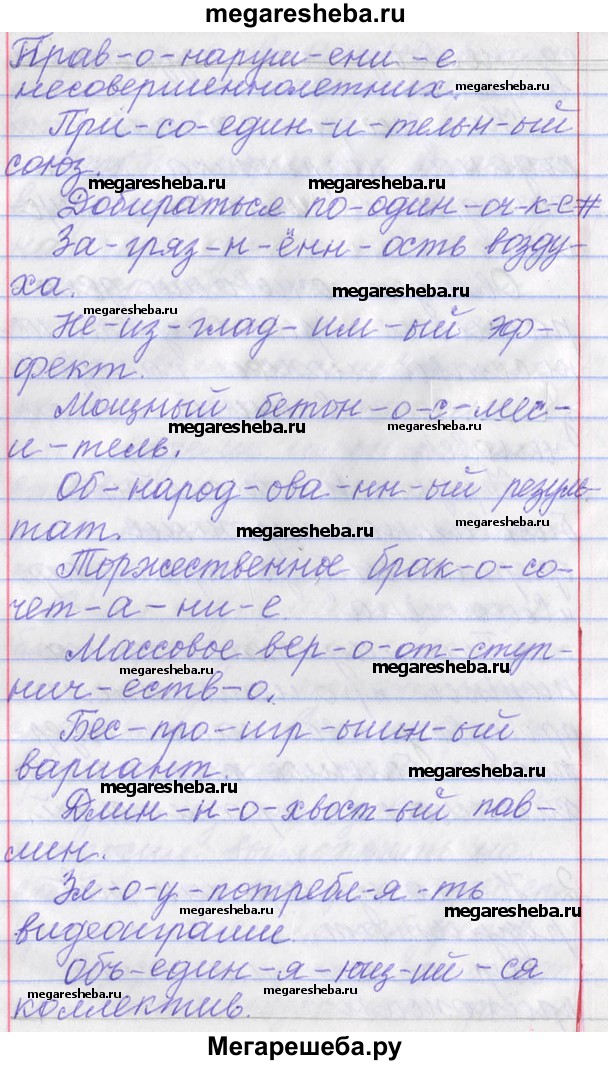 megaresheba.ru
Прав-о-наруш-ени-е
несовершеннолетних.
megaresheba.ru
При-со-един-и-тельн-ый
союз.
megaresheba.ru
megaresheba.ru
Добираться по-один-оч-к-е#
За-гряз-н-ённ-ость возду-
ха.
megaresheba.ru
Не-из-глад-им-ый эф-
фект.
Мощный бетон-о-с-мес-
и-тель.
megaresheba.ru
megaresheba.ru
Об-народ-ова-нн-ый резуль-
тат.
megaresheba.ru
megaresheba.ru
Торжественное брак-о-со-
чет-а-ни-е
megaresheba.ru
Массовое вер-о-от-ступ-
нич-еств-о.
megaresheba.ru
megaresheba.ru
Бес-про-игр-ышн-ый
вариант.
megaresheba.ru
megaresheba.ru
Длин-н-о-хвост-ый пав-
лин.
Зл-о-у-потребл-я-ть
видеоиграми.
megaresheba.ru
megaresheba.ru
Объ-един-я-ющ-ий-ся
коллектив.
megaresheba.ru
megaresheba.ru
Мегарешеба.ру